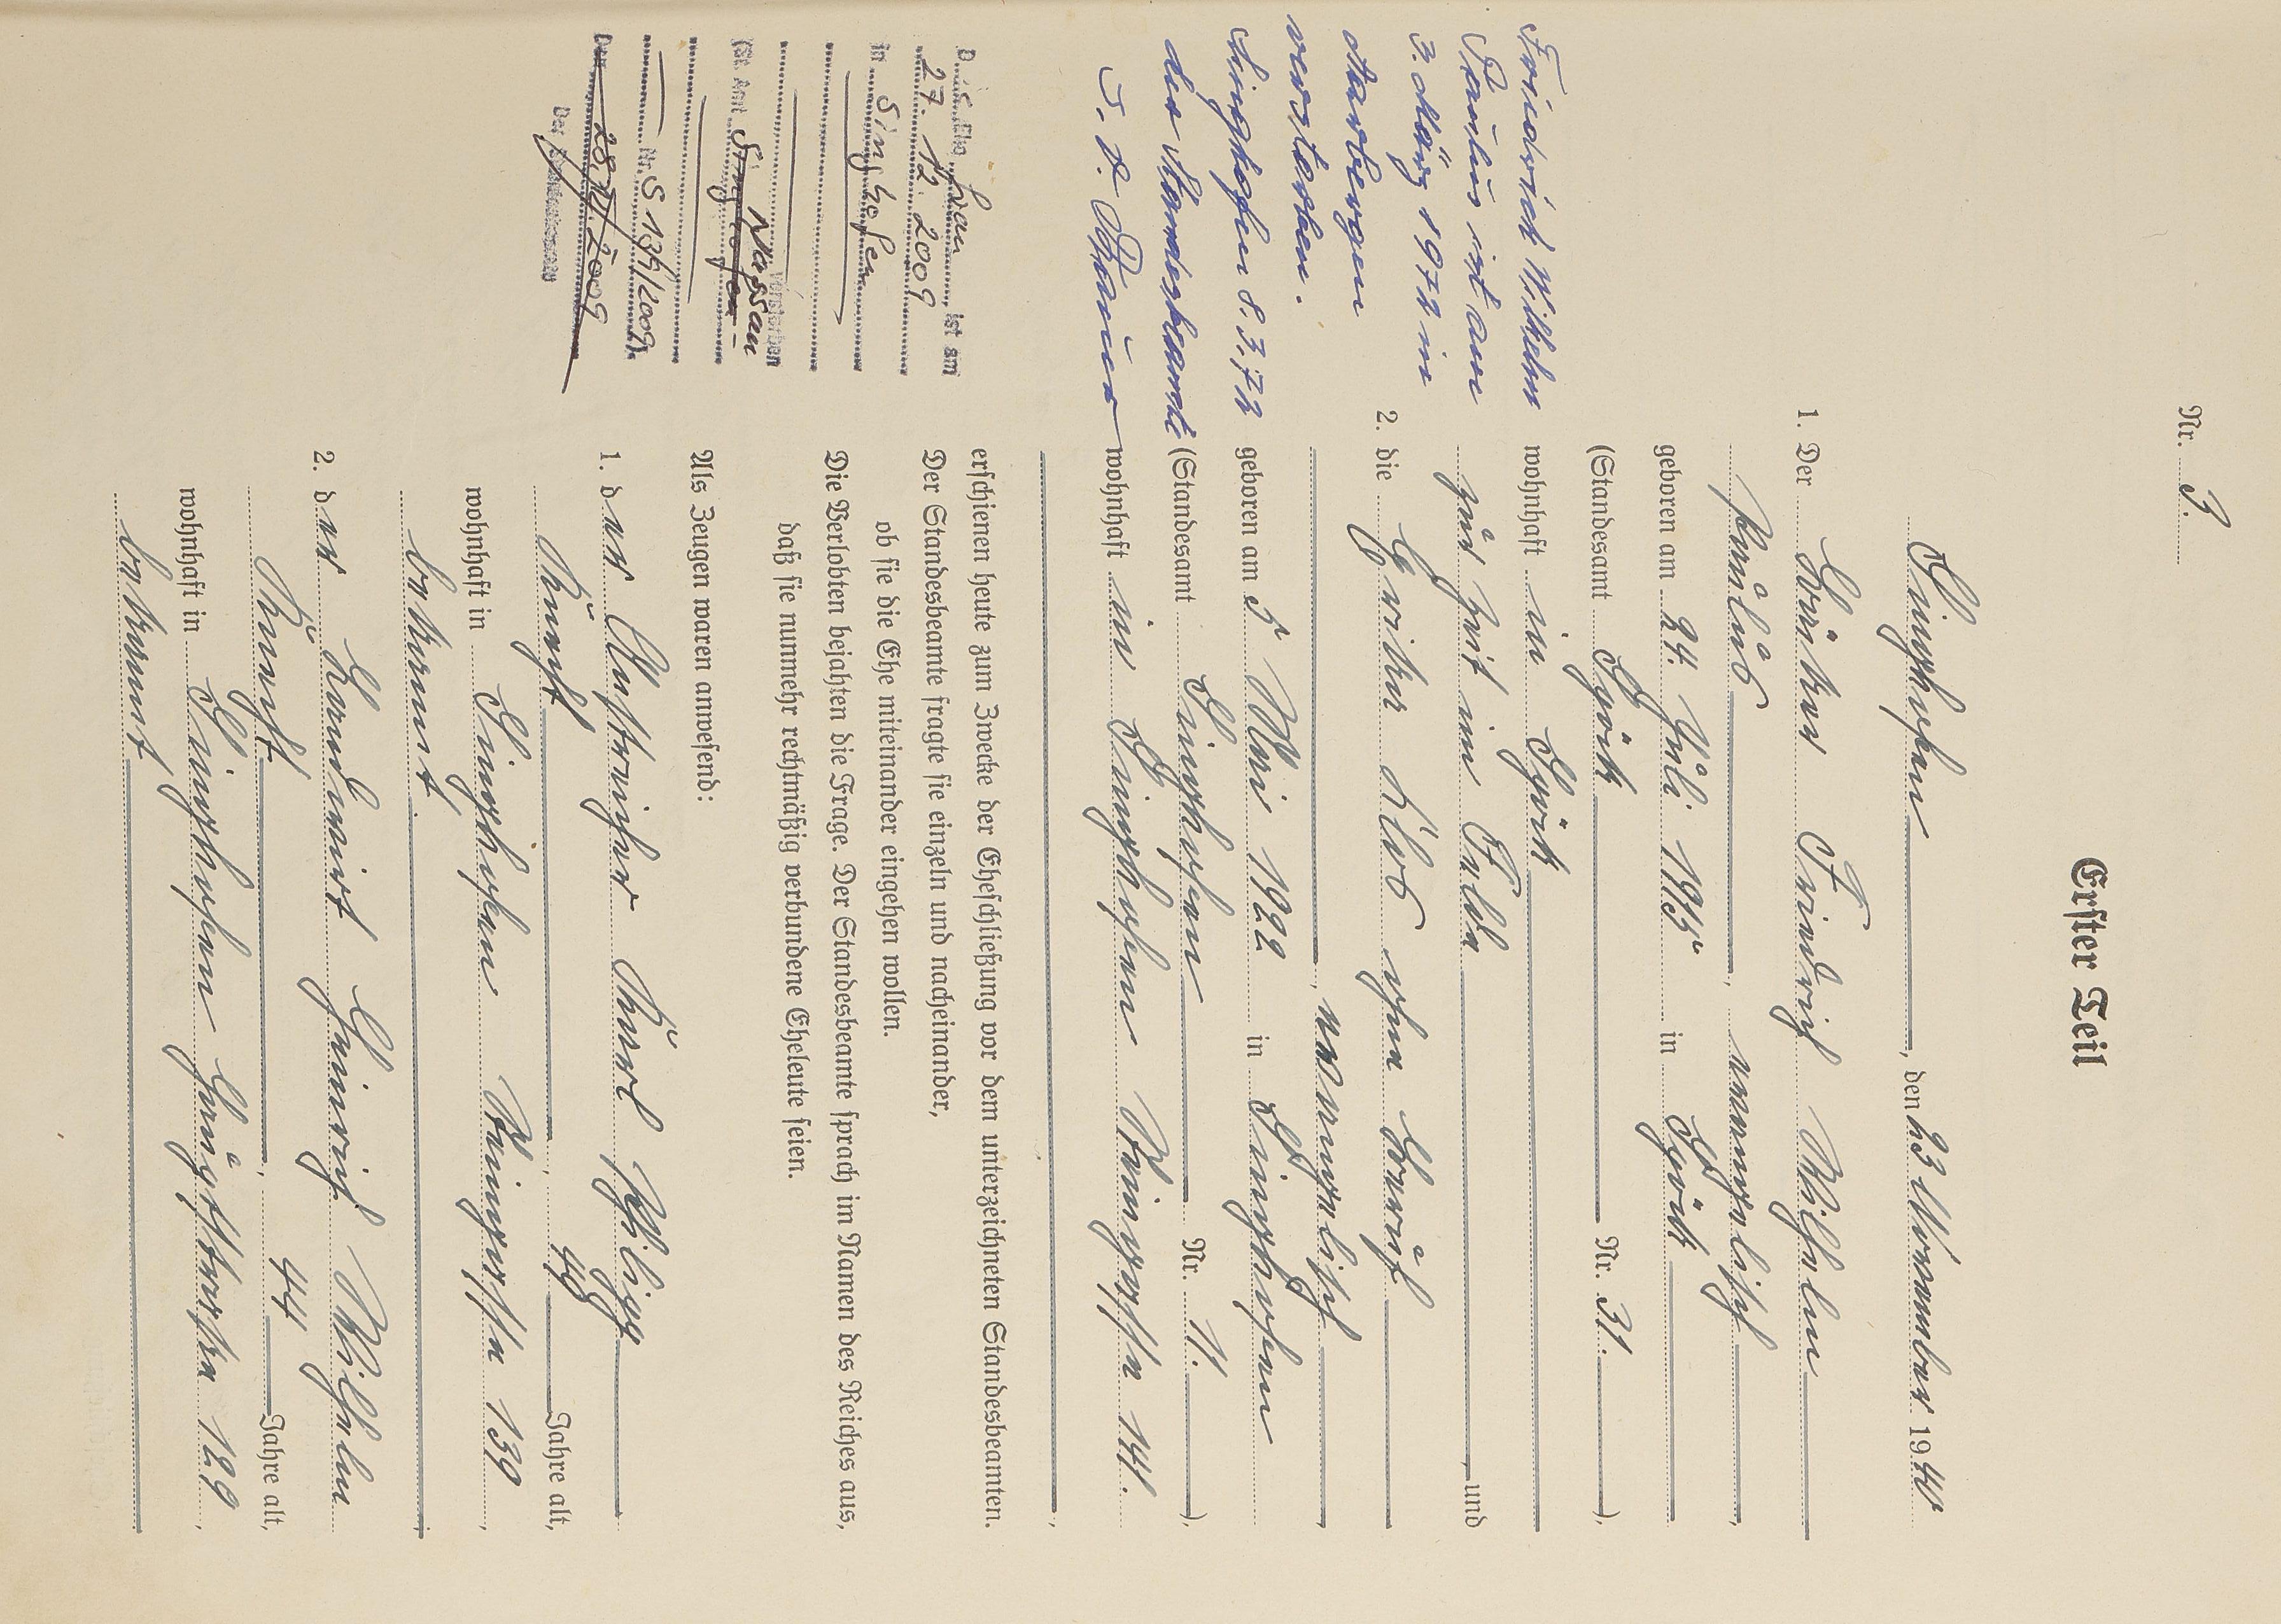 Nr. 9.
Erster Teil
Singhofen, den 23 November 1940
1. Der Bäcker Friedrich Wilhelm
Paulus, evangelisch,
geboren am 24. Juli 1915 in Hömberg
(Standesamt Nr. 31.),
wohnhaft in
zur Zeit im Felde, und
2. die Erika Klos ohne Beruf
, evangelisch,
geboren am 5 Mai 1922 in Singhofen
(Standesamt Singhofen Nr. 11.),
wohnhaft in Singhofen Weingasse 141.
erschienen heute zum Zwecke der Eheschließung vor dem unterzeichneten Standesbeamten.
Der Standesbeamte fragte sie einzeln und nacheinander,
ob sie die Ehe miteinander eingehen wollen.
Die Verlobten bejahten die Frage. Der Standesbeamte sprach im Namen des Reiches aus,
daß sie nunmehr rechtmäßig verbundene Eheleute seien.
Als Zeugen waren anwesend:
1. der Karl Philipp
, 49 Jahre alt,
wohnhaft in Singhofen Weingasse 139
bekannt,
2. der Landwirt Heinrich Wilhelm
, 44 Jahre alt,
wohnhaft in Singhofen Hauptstraße 129,
bekannt
Friedrich Wilhelm
Paulus ist am
3. März 1972 in
verstorben.
Singhofen 8.3.72
der Standesbeamte
I. V.
D.ie Ehefrau ist am
27. 12. 2009
in Singhofen
verstorben
(St. Amt Singhofen Nassau
Nr. S 139/2009).
Den 28.12.2009
Der Standesbeamte